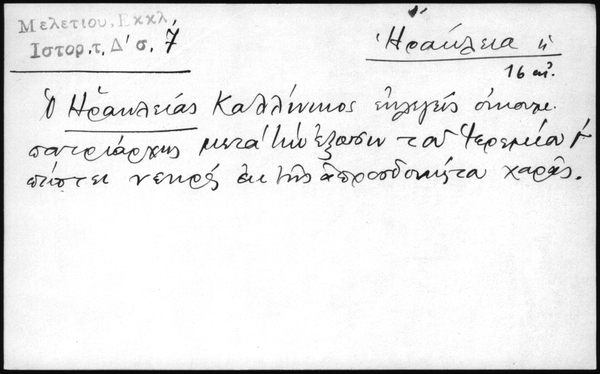 Μελετίου, Εκκλ.
Ιστορ. τ, Δ' σ, 7
Ἡράκλεια
16 αἰ.
Ὁ Ἡρακλείας Καλλίνικος ἐκλεγείς οἰκουμ.
πατριάρχης μετά τήν ἔξωσιν τοῦ Ἱερεμίου
πίπτει νεκρός ἐκ τῆς ἀπροσδοκήτου χαρᾶς.